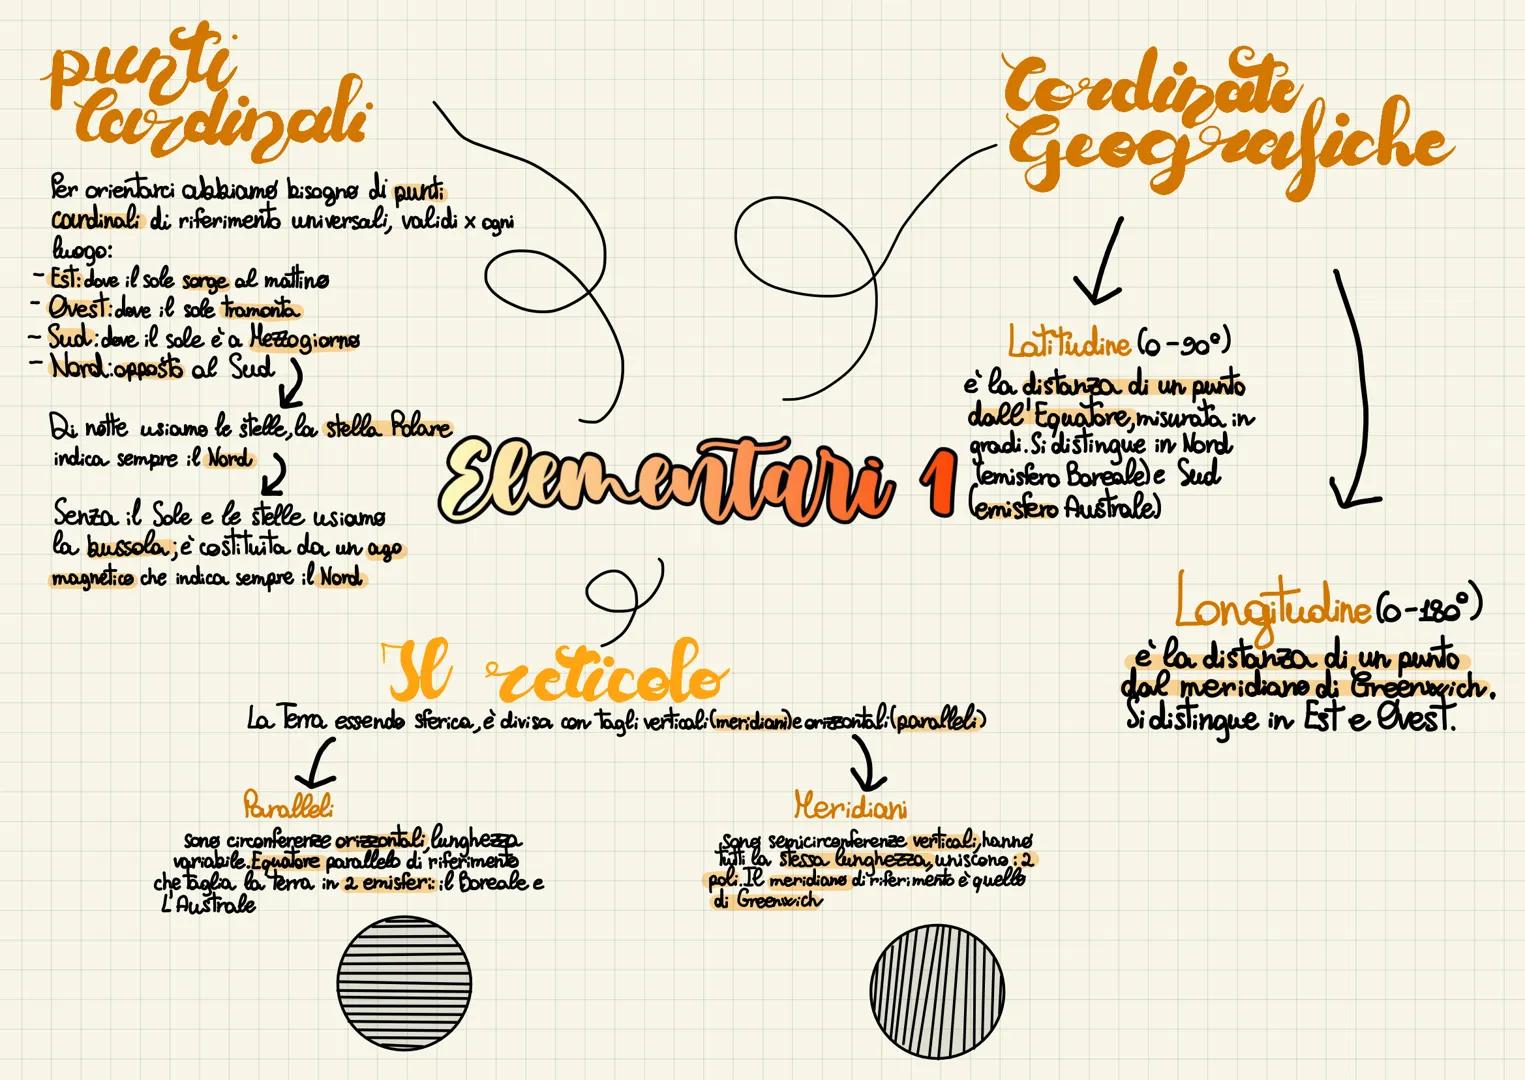 punti
Cardinali
Per orientarci abbiamo bisogno di punti
cardinali di riferimento universali, validi x ogni
luogo:
- Est: dove il sole sorge al mattino
- Ovest: dove il sole tramonta
- Sud: dove il sole è a Mezzogiorno
- Nord: opposto al Sud
Di notte usiamo le stelle, la stella Polare
indica sempre il Nord
Senza il Sole e le stelle usiamo
la bussola; è costituita da un ago
magnetico che indica sempre il Nord
Elementari 1
Cordinate
Geografiche
Latitudine (0-90°)
è la distanza di un punto
dall'Equatore, misurata in
gradi. Si distingue in Nord
(emisfero Boreale) e Sud
(emisfero Australe)
Longitudine (0-180°)
è la distanza di un punto
dal meridiano di Greenwich.
Si distingue in Est e Ovest.
Il reticolo
La Terra essendo sferica, è divisa con tagli verticali (meridiani) e orizzontali (paralleli)
Paralleli
sono circonferenze orizzontali, lunghezza
variabile. Equatore parallelo di riferimento
che taglia la terra in 2 emisferi: il Boreale e
L'Australe
Meridiani
sono semicirconferenze verticali, hanno
tutti la stessa lunghezza, uniscono i 2
poli. Il meridiano di riferimento è quello
di Greenwich